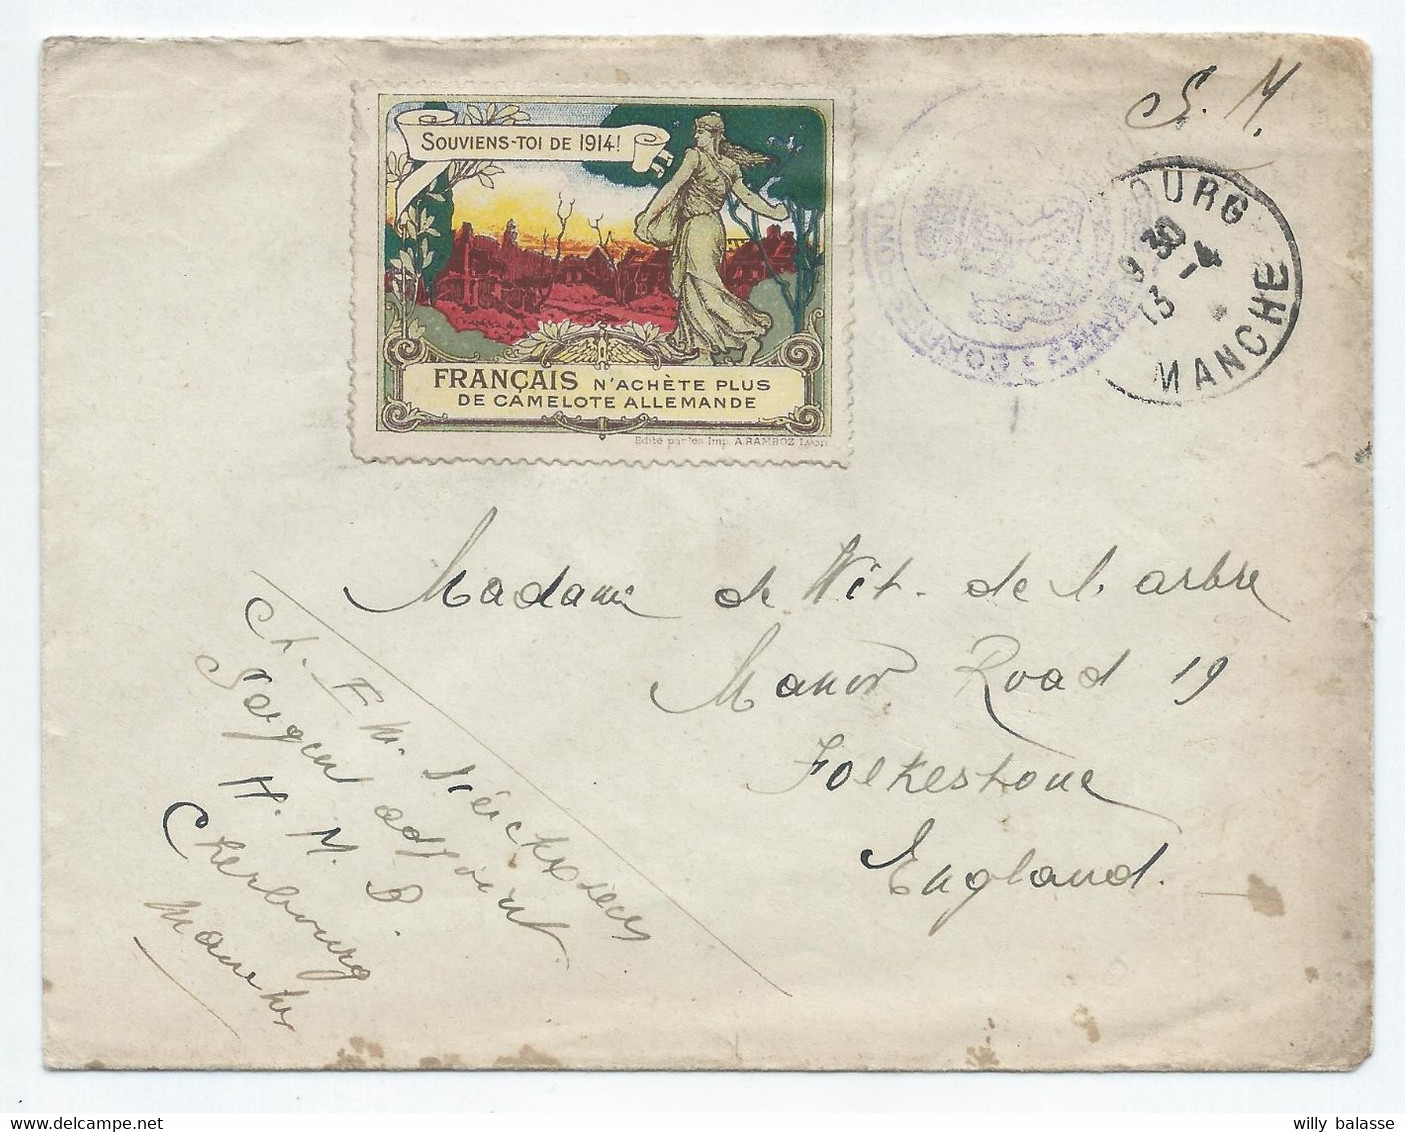 S. M.
SOUVIENS-TOI DE 1914!
OURG
9 30
13 - 1
MANCHE
FRANÇAIS N'ACHÈTE PLUS
DE CAMELOTE ALLEMANDE
Edité par les Imp. A. RAMBOZ Lyon
Madame de Wit. de l'arbre
Manor Road 19
Folkestone
England.
Ch. F. M.
Sergent adjoint
H. M. B.
Cherbourg
Manche
willy balasse